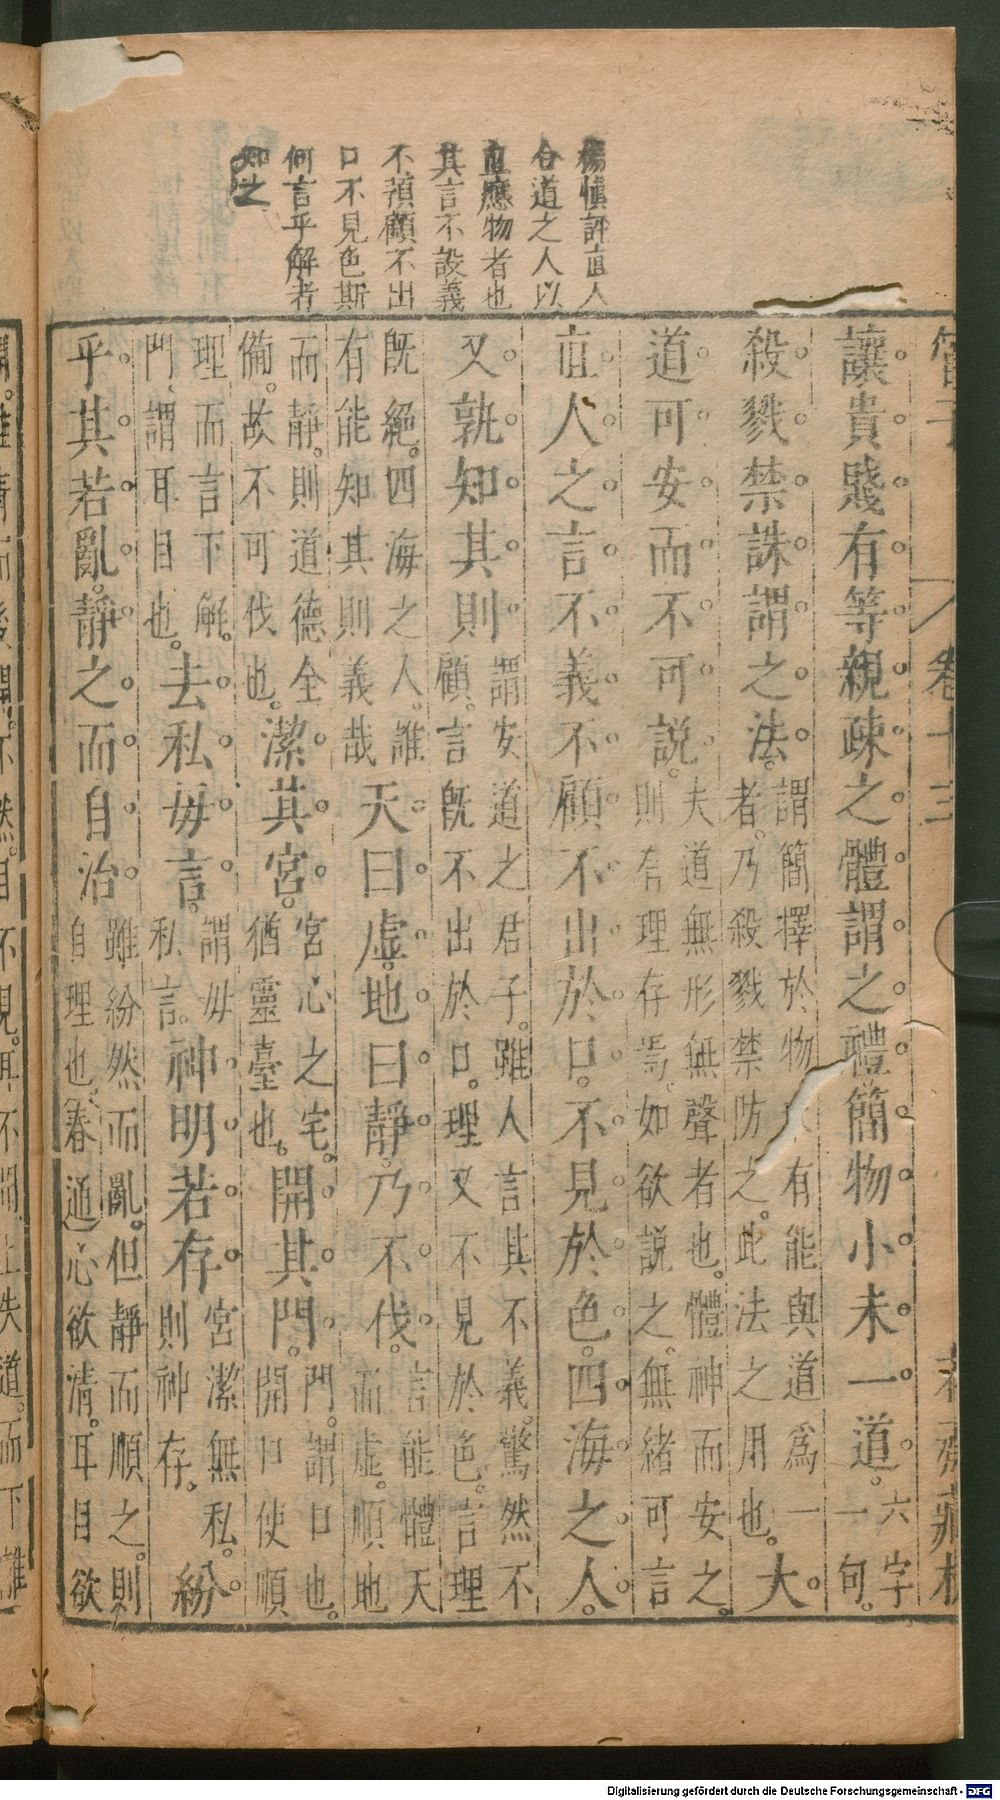 楊慎評直人
合道之人以
直應物者也
其言不設義
不預顧不出
口不見色斯
何言乎解者
知之
管子
卷十三
讓貴賤有等親疎之體謂之禮簡物小未一道六字一句
殺戮禁誅謂之法謂簡擇於物 有能與道爲一者乃殺戮禁防之此法之用也大
道可安而不可說夫道無形無聲者也體神而安之則有理存焉如欲說之無緒可言
直人之言不義不顧不出於口不見於色四海之人
又孰知其則謂安道之君子雖人言其不義驚然不顧言旣不出於口理又不見於色言理
旣絕四海之人誰有能知其則義哉天曰虛地曰靜乃不伐言能體天而虛順地
而靜則道德全備故不可伐也潔其宮宮心之宅猶靈臺也開其門門謂口也開口使順
理而言下解門謂耳目也去私毋言謂毋私言神明若存宮潔無私則神存紛
乎其若亂靜之而自治雖紛然而亂但靜而順之則自理也春通心欲清耳目欲
Digitalisierung gefördert durch die Deutsche Forschungsgemeinschaft - DFG